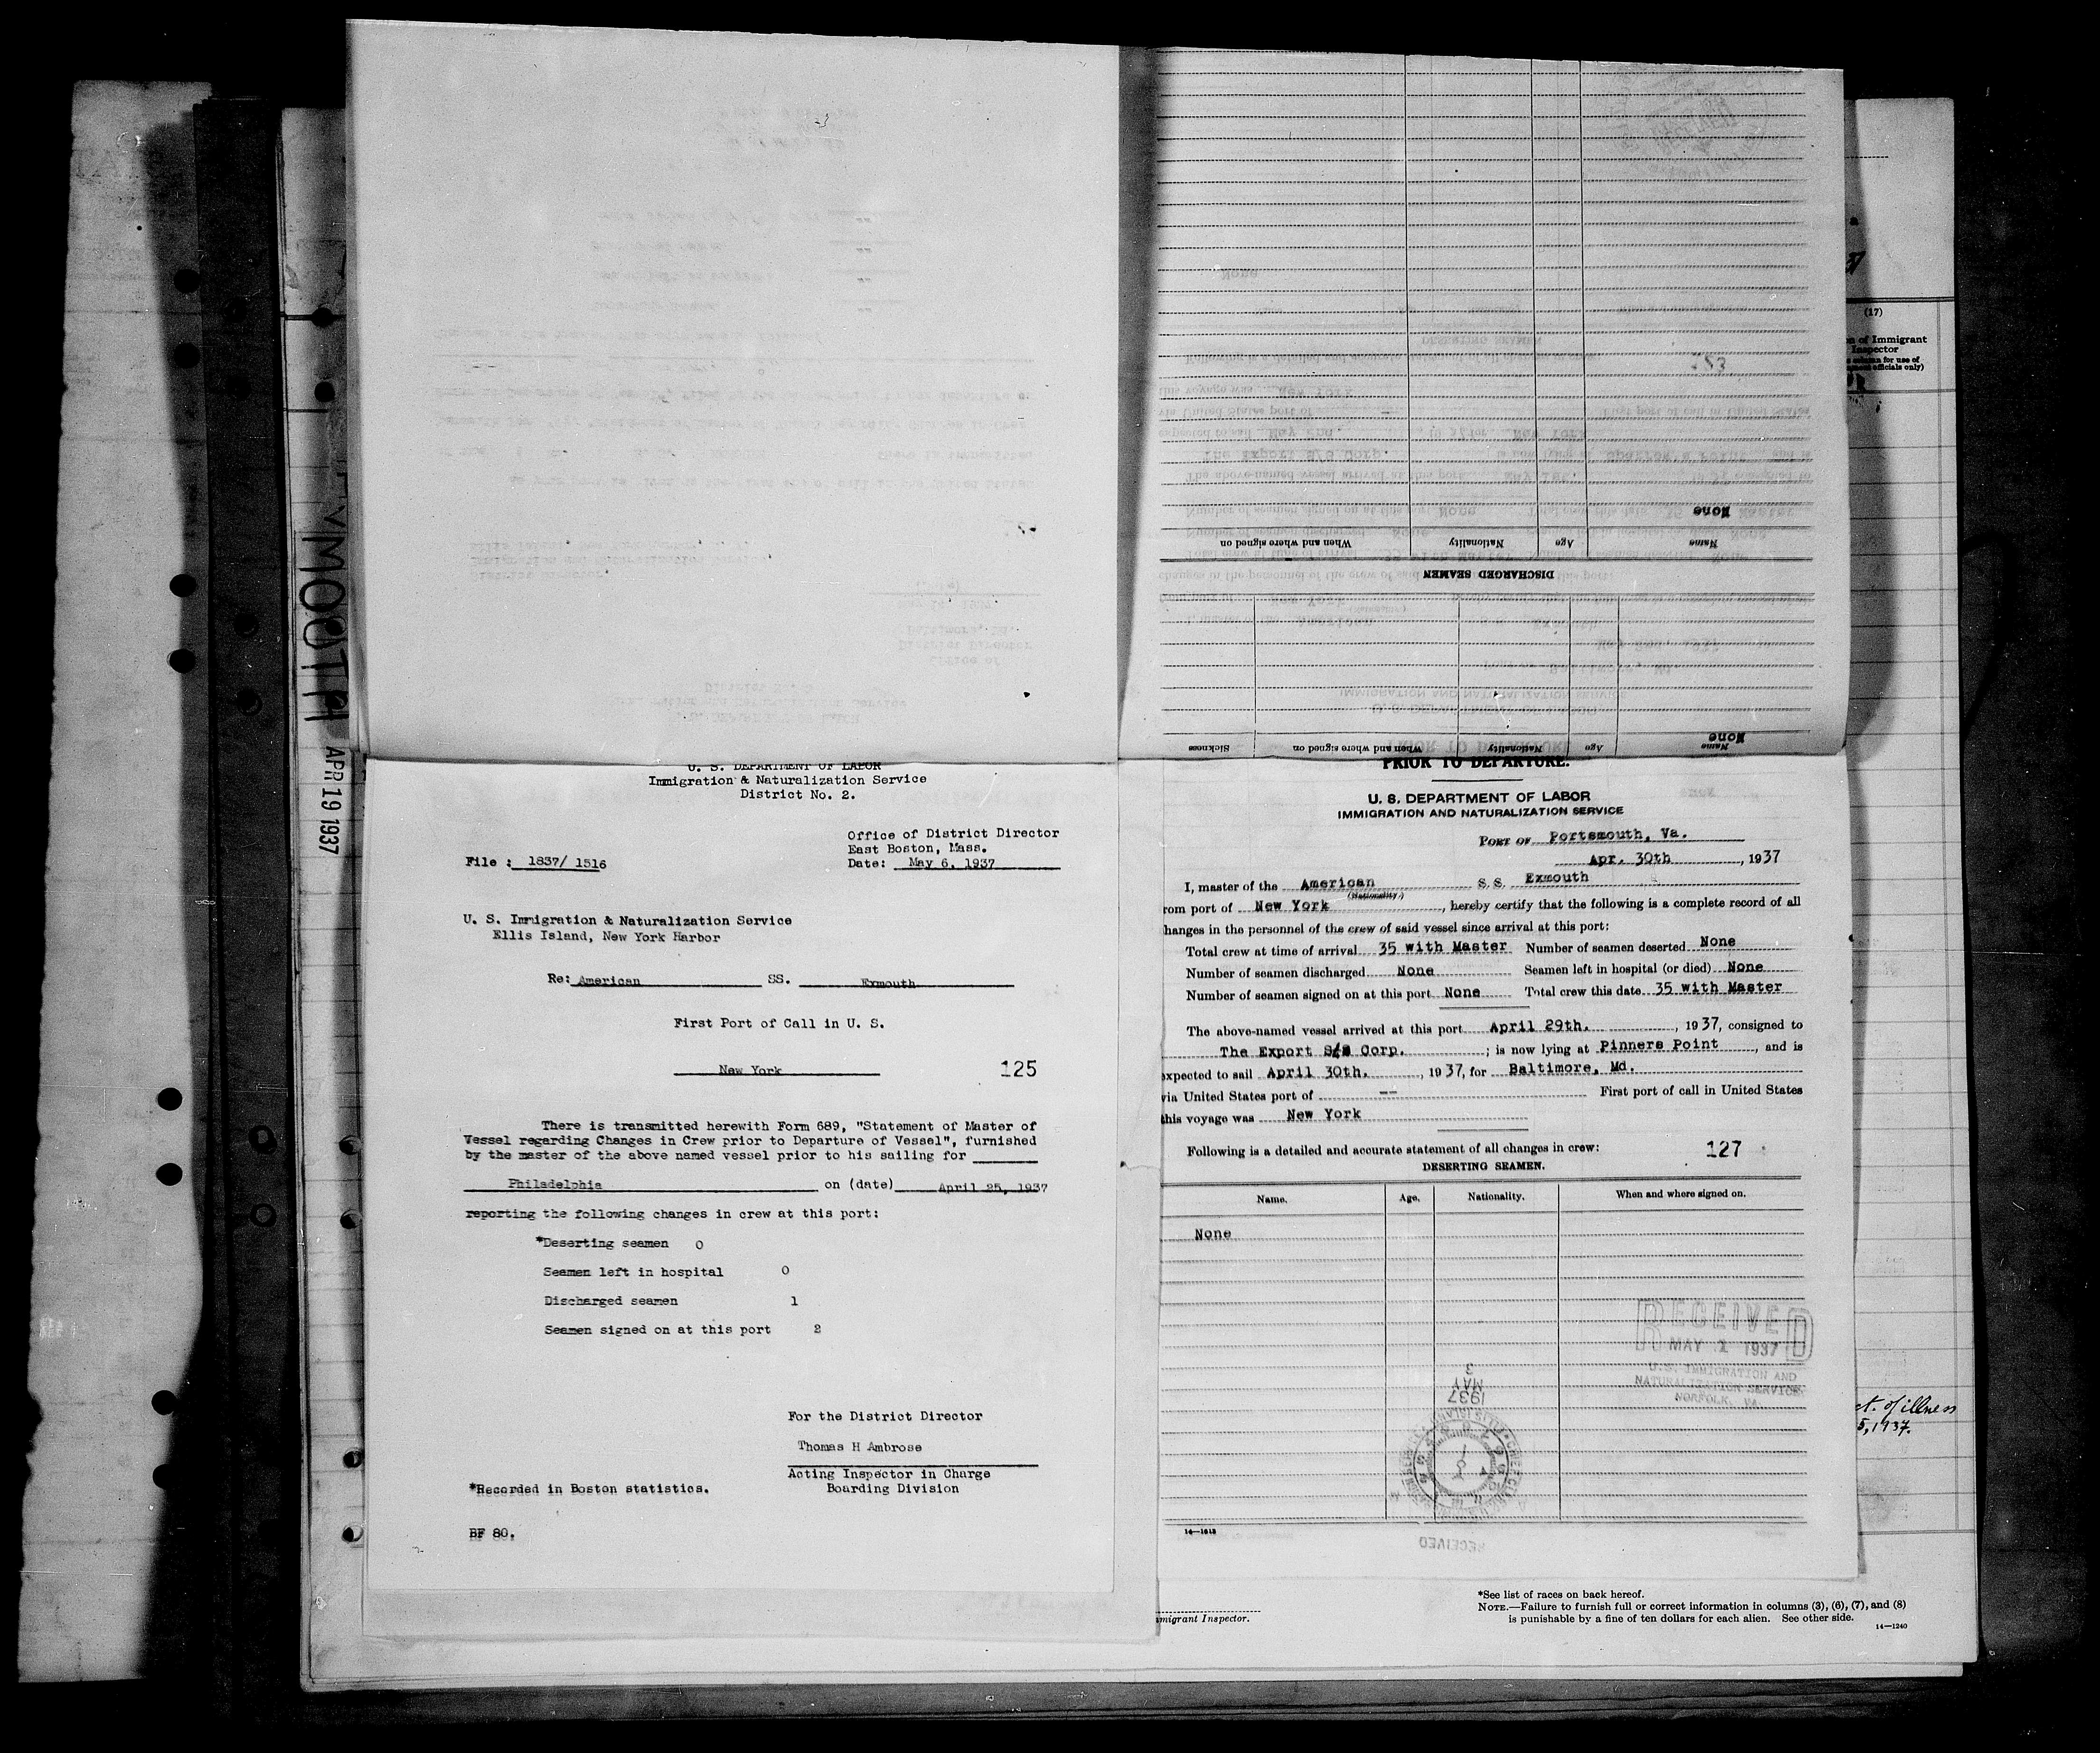 U. S. DEPARTMENT OF LABOR
Immigration & Naturalization Service
District No. 2.
Office of District Director
East Boston, Mass.
File : 1837/ 1516
Date: May 6, 1937
U. S. Immigration & Naturalization Service
Ellis Island, New York Harbor
Re: American SS. Exmouth
First Port of Call in U. S.
New York 125
There is transmitted herewith Form 689, "Statement of Master of
Vessel regarding Changes in Crew prior to Departure of Vessel", furnished
by the master of the above named vessel prior to his sailing for
Philadelphia on (date) April 25, 1937
reporting the following changes in crew at this port:
*Deserting seamen 0
Seamen left in hospital 0
Discharged seamen 1
Seamen signed on at this port 2
For the District Director
Thomas H Ambrose
Acting Inspector in Charge
Boarding Division
*Recorded in Boston statistics.
BF 80.
None
Name Age Nationality When and where signed on
DISCHARGED SEAMEN
None
Name Age Nationality When and where signed on Sickness
PRIOR TO DEPARTURE.
U. S. DEPARTMENT OF LABOR
IMMIGRATION AND NATURALIZATION SERVICE
PORT OF Portsmouth, Va.
Apr. 30th, 1937
I, master of the American S.S. Exmouth
(Nationality.)
rom port of New York, hereby certify that the following is a complete record of all
hanges in the personnel of the crew of said vessel since arrival at this port:
Total crew at time of arrival 35 with Master Number of seamen deserted None
Number of seamen discharged None Seamen left in hospital (or died) None
Number of seamen signed on at this port None Total crew this date 35 with Master
The above-named vessel arrived at this port April 29th., 1937, consigned to
The Export S/S Corp. ; is now lying at Pinners Point, and is
expected to sail April 30th., 1937, for Baltimore, Md.
via United States port of -- First port of call in United States
this voyage was New York
Following is a detailed and accurate statement of all changes in crew: 127
DESERTING SEAMEN.
Name. Age. Nationality. When and where signed on.
None
RECEIVED
MAY 1 1937
U.S. IMMIGRATION AND
NATURALIZATION SERVICE
NORFOLK, VA.
1937
MAY
3
14—1613
RECEIVED
MOUTH
APR 19 1937
(17)
of Immigrant
Inspector
for use of
officials only)
of illness
5, 1937.
mmigrant Inspector.
*See list of races on back hereof.
NOTE.—Failure to furnish full or correct information in columns (3), (6), (7), and (8)
is punishable by a fine of ten dollars for each alien. See other side.
14—1240